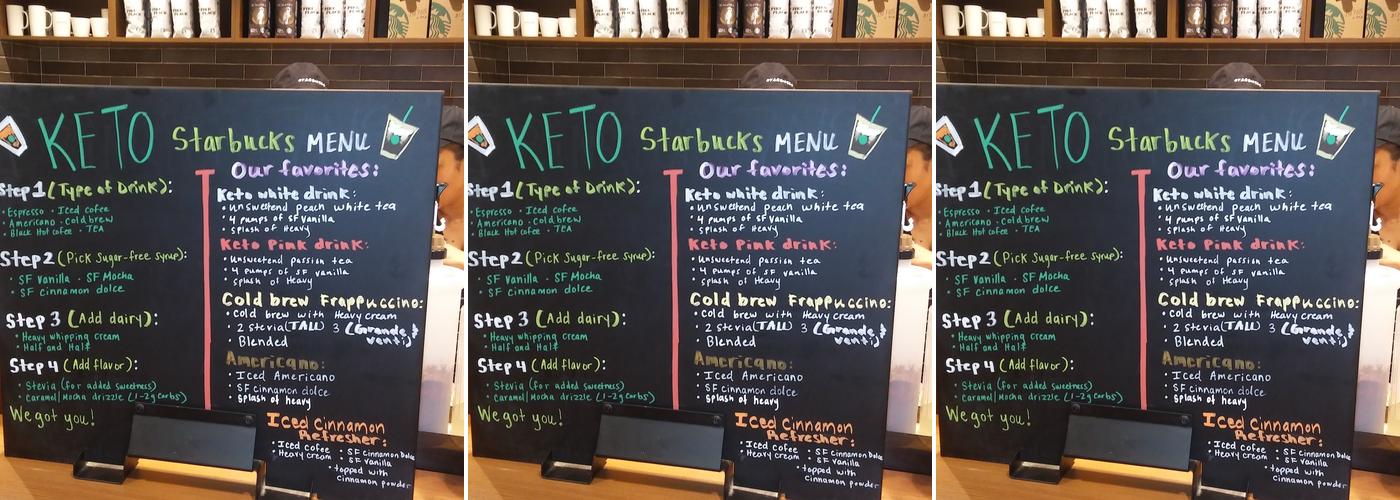 KETO Starbucks MENU
Step 1 (Type of Drink):
• Espresso • Iced cofee
• Americano • Cold brew
• Black Hot cofee • TEA
Step 2 (Pick Sugar-free syrup):
• SF Vanilla • SF Mocha
• SF cinnamon dolce
Step 3 (Add dairy):
• Heavy whipping cream
• Half and Half
Step 4 (Add flavor):
• Stevia (for added sweetness)
• Caramel/Mocha drizzle (1-2g carbs)
We got you!
Our favorites:
Keto white drink:
• Unsweetend peach white tea
• 4 pumps of SF vanilla
• splash of Heavy
Keto Pink drink:
• Unsweetend passion tea
• 4 pumps of SF vanilla
• splash of Heavy
Cold brew Frappuccino:
• Cold brew with Heavy cream
• 2 stevia (TALL) 3 (Grande,
venti)
• Blended
Americano:
• Iced Americano
• SF cinnamon dolce
• splash of heavy
Iced Cinnamon
Refresher:
• Iced cofee • SF Cinnamon Dolce
• Heavy cream • SF vanilla
• topped with
Cinnamon powder
KETO Starbucks MENU
Step 1 (Type of Drink):
• Espresso • Iced cofee
• Americano • Cold brew
• Black Hot cofee • TEA
Step 2 (Pick Sugar-free syrup):
• SF Vanilla • SF Mocha
• SF cinnamon dolce
Step 3 (Add dairy):
• Heavy whipping cream
• Half and Half
Step 4 (Add flavor):
• Stevia (for added sweetness)
• Caramel/Mocha drizzle (1-2g carbs)
We got you!
Our favorites:
Keto white drink:
• Unsweetend peach white tea
• 4 pumps of SF vanilla
• splash of Heavy
Keto Pink drink:
• Unsweetend passion tea
• 4 pumps of SF vanilla
• splash of Heavy
Cold brew Frappuccino:
• Cold brew with Heavy cream
• 2 stevia (TALL) 3 (Grande,
venti)
• Blended
Americano:
• Iced Americano
• SF cinnamon dolce
• splash of heavy
Iced Cinnamon
Refresher:
• Iced cofee • SF Cinnamon Dolce
• Heavy cream • SF vanilla
• topped with
Cinnamon powder
KETO Starbucks MENU
Step 1 (Type of Drink):
• Espresso • Iced cofee
• Americano • Cold brew
• Black Hot cofee • TEA
Step 2 (Pick Sugar-free syrup):
• SF Vanilla • SF Mocha
• SF cinnamon dolce
Step 3 (Add dairy):
• Heavy whipping cream
• Half and Half
Step 4 (Add flavor):
• Stevia (for added sweetness)
• Caramel/Mocha drizzle (1-2g carbs)
We got you!
Our favorites:
Keto white drink:
• Unsweetend peach white tea
• 4 pumps of SF vanilla
• splash of Heavy
Keto Pink drink:
• Unsweetend passion tea
• 4 pumps of SF vanilla
• splash of Heavy
Cold brew Frappuccino:
• Cold brew with Heavy cream
• 2 stevia (TALL) 3 (Grande,
venti)
• Blended
Americano:
• Iced Americano
• SF cinnamon dolce
• splash of heavy
Iced Cinnamon
Refresher:
• Iced cofee • SF Cinnamon Dolce
• Heavy cream • SF vanilla
• topped with
Cinnamon powder